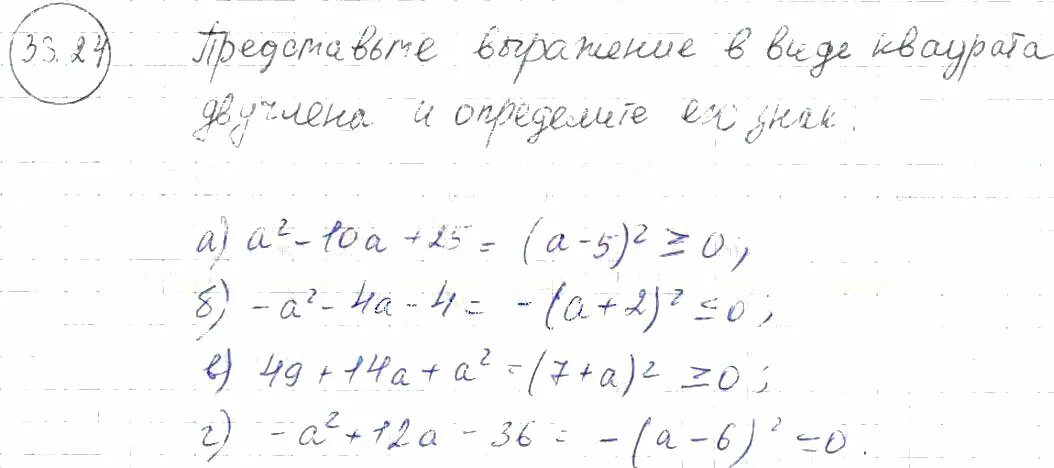 33.24
Представьте выражение в виде квадрата
двучлена и определите его знак.
а) a² - 10a + 25 = (a - 5)² ≥ 0;
б) -a² - 4a - 4 = -(a + 2)² ≤ 0;
в) 49 + 14a + a² = (7 + a)² ≥ 0;
г) -a² + 12a - 36 = -(a - 6)² ≤ 0.